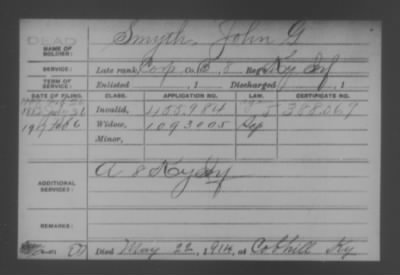 DEAD
NAME OF SOLDIER: Smyth, John G
SERVICE: Late rank, Corp Co. B, 8 Reg't Ky Inf
TERM OF SERVICE: Enlisted , 1 Discharged , 1
DATE OF FILING. CLASS. APPLICATION NO. LAW. CERTIFICATE NO.
Invalid, 1155.984 388.067
1919 Feb 6 Widow, 1093005
Minor,
ADDITIONAL SERVICES: A 8 Ky Inf
REMARKS:
Died May 22, 1914, at Cobhill Ky